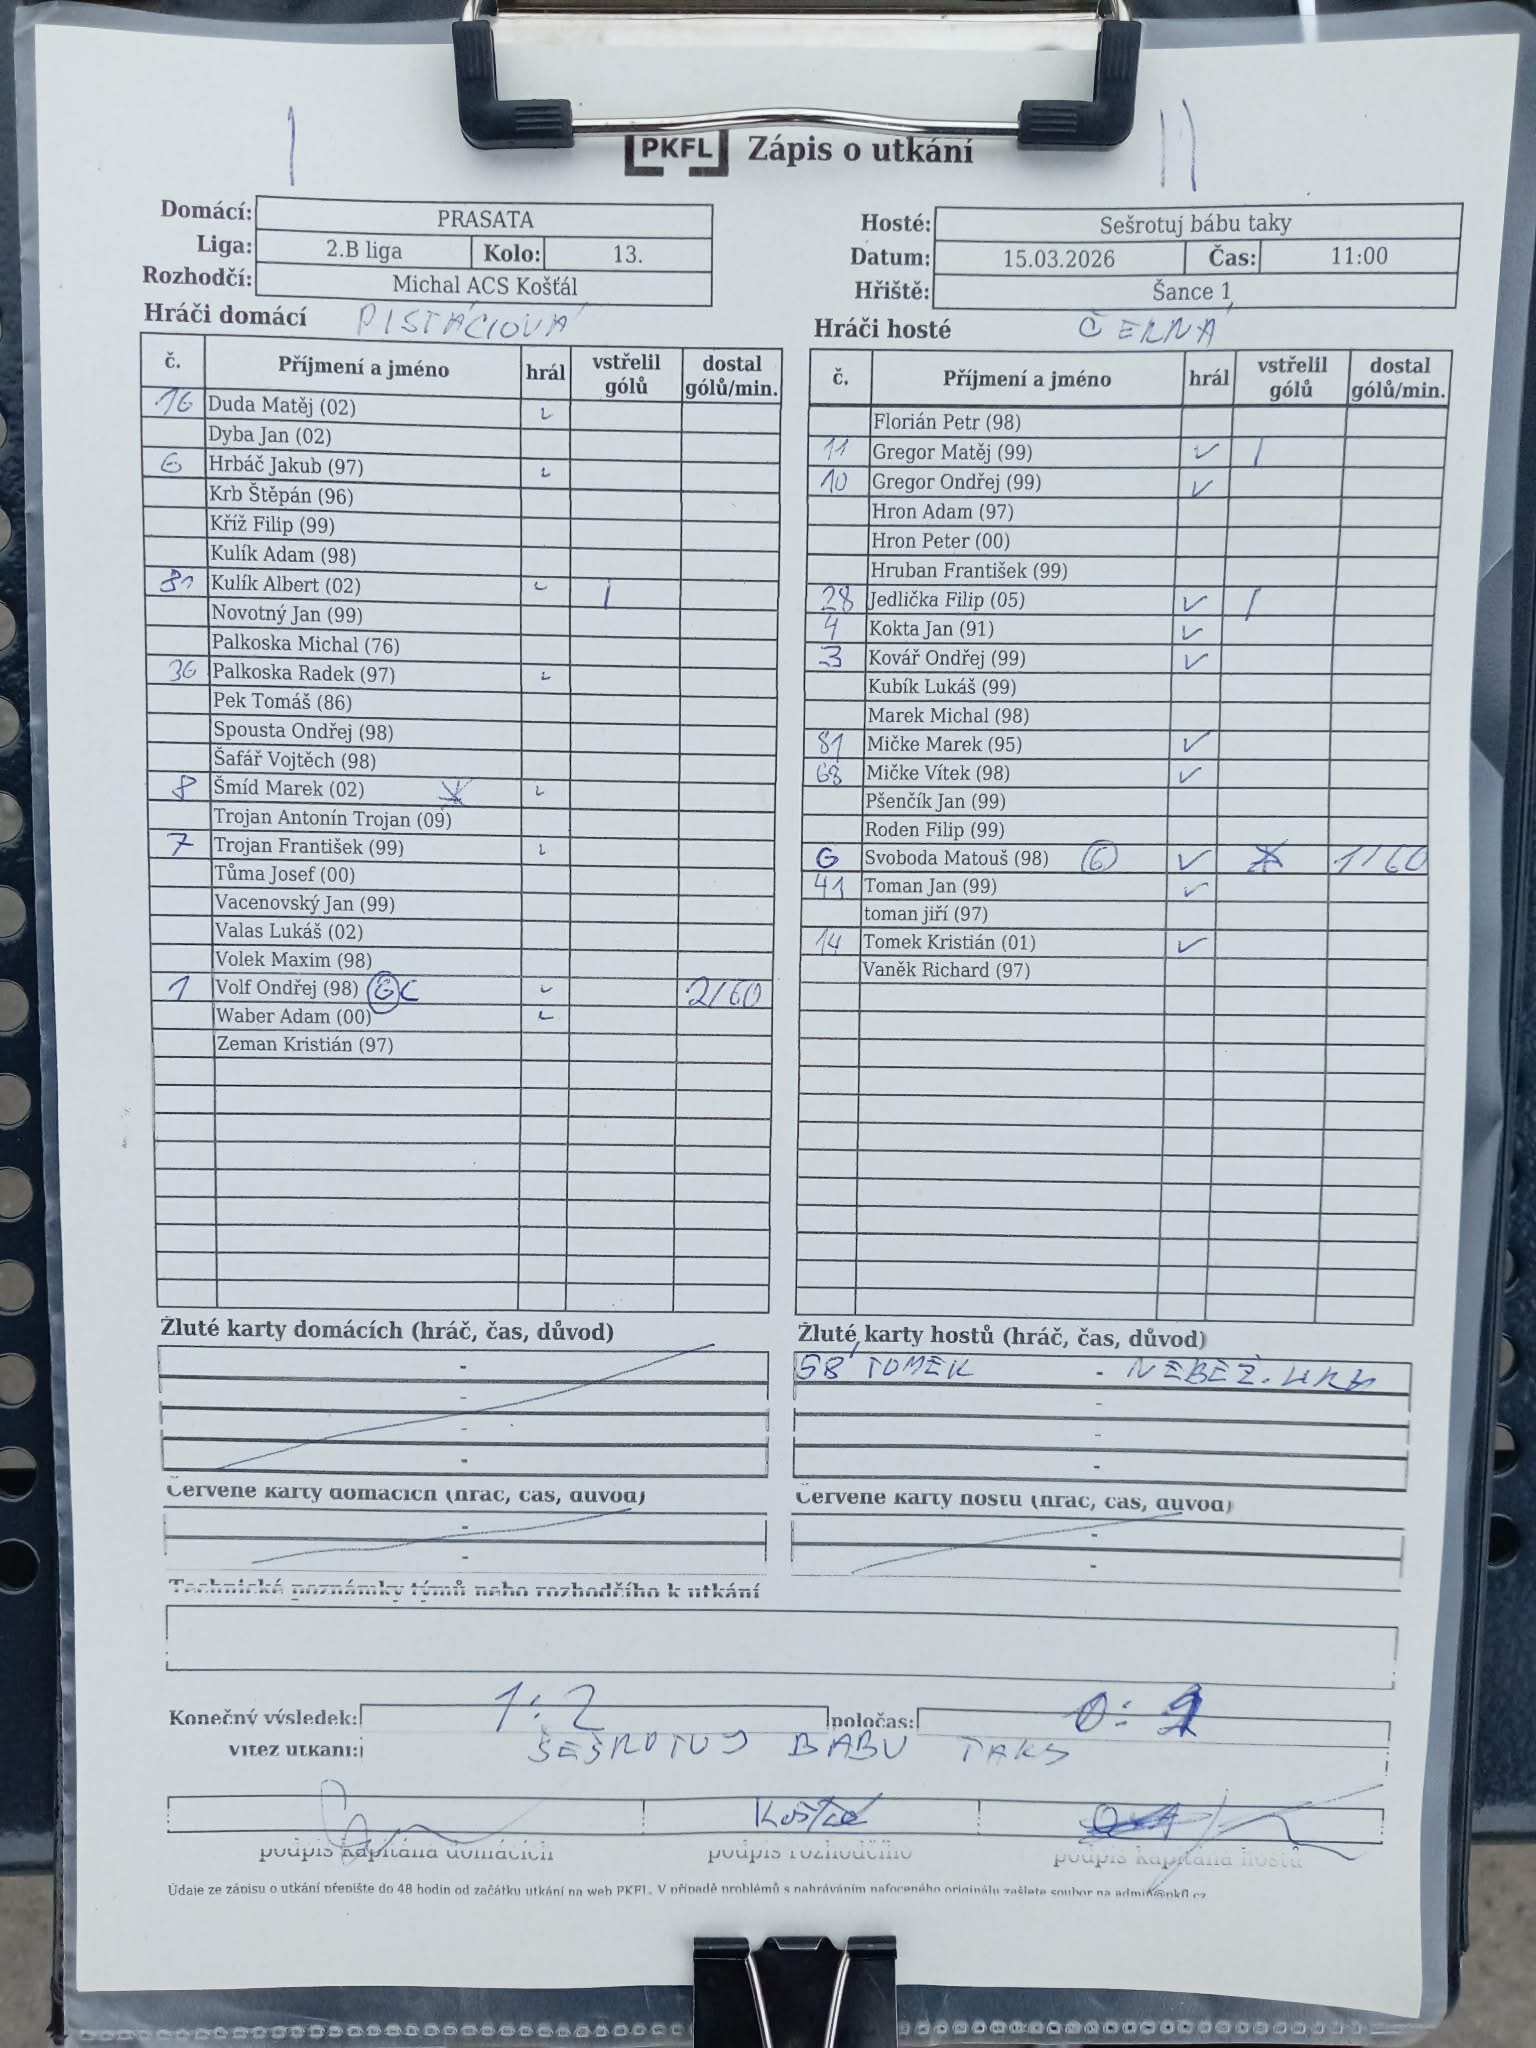 | ||
PKFL Zápis o utkání
Domácí: PRASATA
Liga: 2.B liga Kolo: 13.
Rozhodčí: Michal ACS Košťál
Hosté: Sešrotuj bábu taky
Datum: 15.03.2026 Čas: 11:00
Hřiště: Šance 1
Hráči domácí PISTÁCIOVÁ
č. Příjmení a jméno hrál vstřelil gólů dostal gólů/min.
16 Duda Matěj (02) ✓
Dyba Jan (02)
6 Hrbáč Jakub (97) ✓
Krb Štěpán (96)
Kříž Filip (99)
Kulík Adam (98)
81 Kulík Albert (02) ✓ |
Novotný Jan (99)
Palkoska Michal (76)
36 Palkoska Radek (97) ✓
Pek Tomáš (86)
Spousta Ondřej (98)
Šafář Vojtěch (98)
8 Šmíd Marek (02) ✓
Trojan Antonín Trojan (09)
7 Trojan František (99) ✓
Tůma Josef (00)
Vacenovský Jan (99)
Valas Lukáš (02)
Volek Maxim (98)
1 Volf Ondřej (98) G C ✓ 2/60
Waber Adam (00) ✓
Zeman Kristián (97)
Hráči hosté ČERNÁ
č. Příjmení a jméno hrál vstřelil gólů dostal gólů/min.
Florián Petr (98)
11 Gregor Matěj (99) ✓ |
10 Gregor Ondřej (99) ✓
Hron Adam (97)
Hron Peter (00)
Hruban František (99)
28 Jedlička Filip (05) ✓ |
4 Kokta Jan (91) ✓
3 Kovář Ondřej (99) ✓
Kubík Lukáš (99)
Marek Michal (98)
81 Mičke Marek (95) ✓
68 Mičke Vítek (98) ✓
Pšenčík Jan (99)
Roden Filip (99)
G Svoboda Matouš (98) G ✓ 1/60
41 Toman Jan (99) ✓
toman jiří (97)
14 Tomek Kristián (01) ✓
Vaněk Richard (97)
Žluté karty domácích (hráč, čas, důvod)
-
-
-
-
Žluté karty hostů (hráč, čas, důvod)
58' TOMEK - NEBEZ. HRA
-
-
-
Červené karty domácích (hráč, čas, důvod)
-
-
Červené karty hostů (hráč, čas, důvod)
-
-
Technické poznámky týmů nebo rozhodčího k utkání
Konečný výsledek: 1:2 poločas: 0:
Vítěz utkání: SEŠROTUJ BÁBU TAKY
Košťál
podpis kapitána domácích podpis rozhodčího podpis kapitána hostů
Údaje ze zápisu o utkání přepište do 48 hodin od začátku utkání na web PKFL. V případě problémů s nahráváním nafoceného originálu zašlete soubor na admin@pkfl.cz